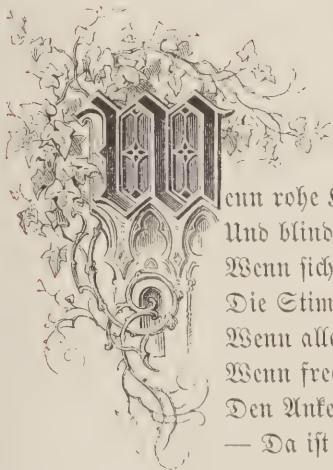 Wenn rohe
Und blind
Wenn ſich
Die Stim
Wenn alle
Wenn frec
Den Anke
— Da iſt